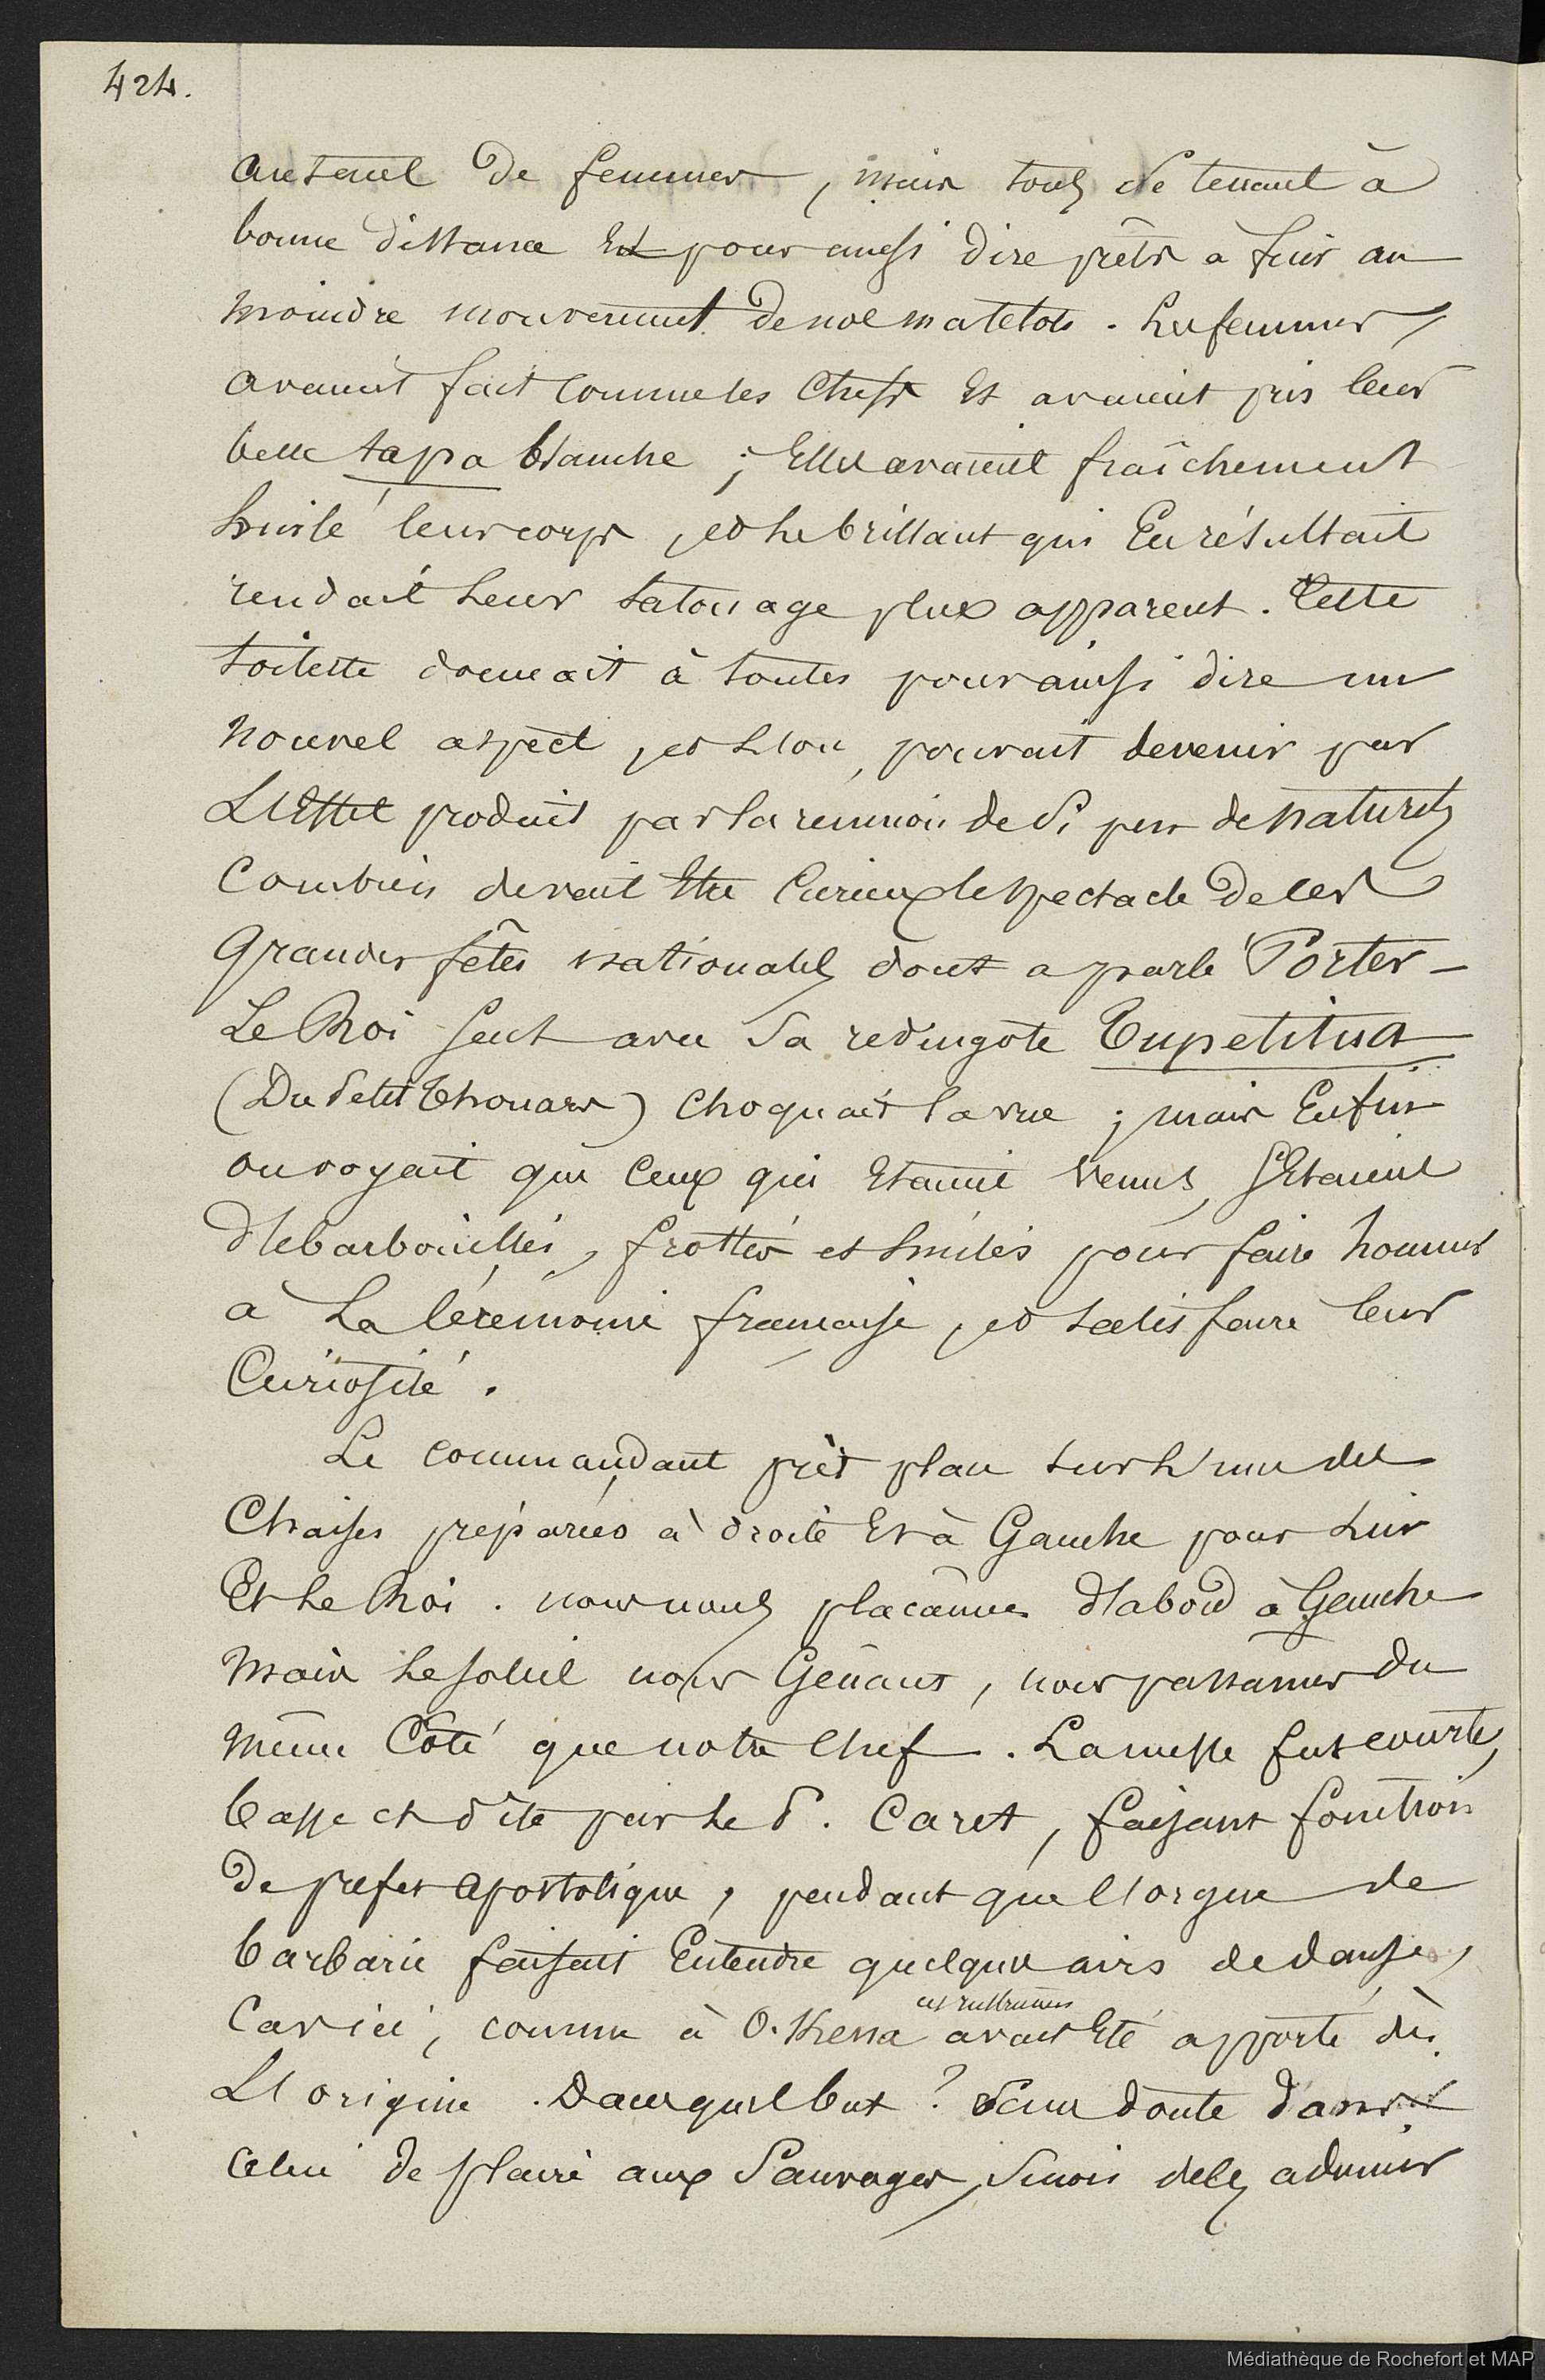 424.
autant de femmes, mais tous se tenant à
bonne distance Et pour ainsi dire prêts a fuir au
moindre mouvement de nos matelots. Les femmes,
avaient fait comme les Chefs Et avaient pris leur
belle tapa blanche ; Elles avaient fraîchement
huilé leur corps, et le brillant qui En résultait
rendait leur tatouage plus apparent. Cette
toilette donnait à toutes pour ainsi dire un
nouvel aspect, et L'on pouvait devenir par
L'Effet produit par la réunion de si peu de naturels
Combien devait Etre Curieux le spectacle de ces
Grandes fêtes nationales dont a parlé Porter –
Le Roi seul avec sa redingote Tupetitua
(Du Petit Thouars) choquait la vue ; mais Enfin
on voyait que Ceux qui Etaient venus, s'Etaient
débarbouillés, frottés et huilés pour faire honneur
a La Cérémonie française, et satisfaire leur
Curiosité.
Le commandant prit place sur L'une des
Chaises préparées à droite Et à Gauche pour Lui
Et Le Roi. nous nous plaçâmes d'abord à Gauche
mais Le soleil nous Gênant, nous passames du
même Côté que notre Chef. La messe fut courte,
basse et dite par Le P. Caret, faisant fonction
de prefet apostolique, pendant que l'orgue de
barbarie faisait Entendre quelques airs de danse,
Car ici, comme à O. Kena cet instrument avait Eté apporté dès
L'origine. Dans quel but ? Sans doute dans
Celui de plaire aux Sauvages, Sinon de les admirer